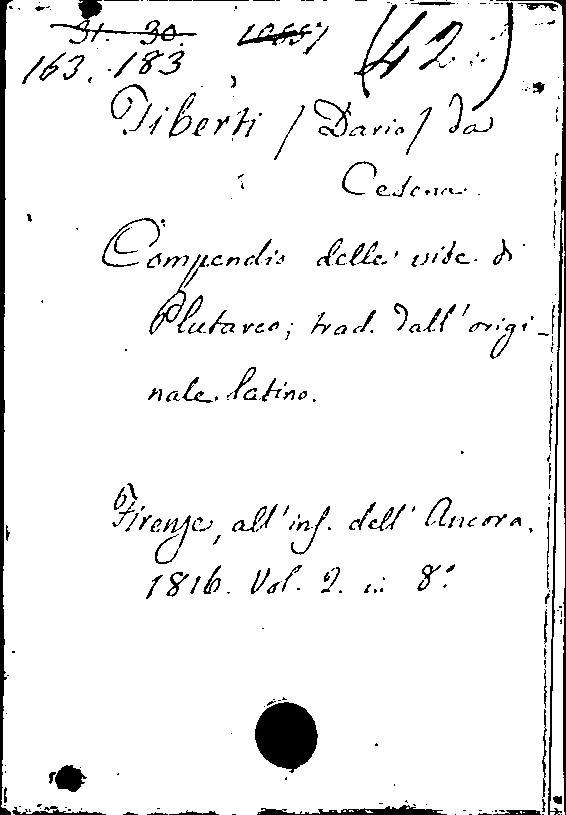 31. 30.
163. 183 (42)
Tiberti / Dario / da
Cesena.
Compendio delle vite di
Plutarco; trad. dall'origi-
nale latino.
Firenze, all'ins. dell'Ancora.
1816. Vol. 2. in 8°.